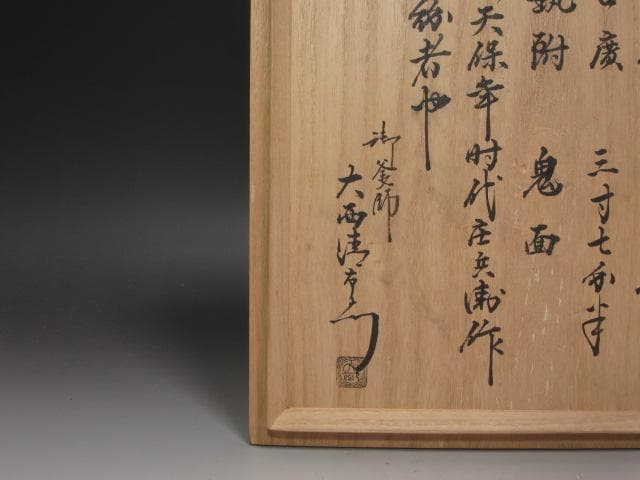 廣 三寸七分半
附 鬼面
天保年时代庄兵衛作
者也
御釜師
大西清右衛門